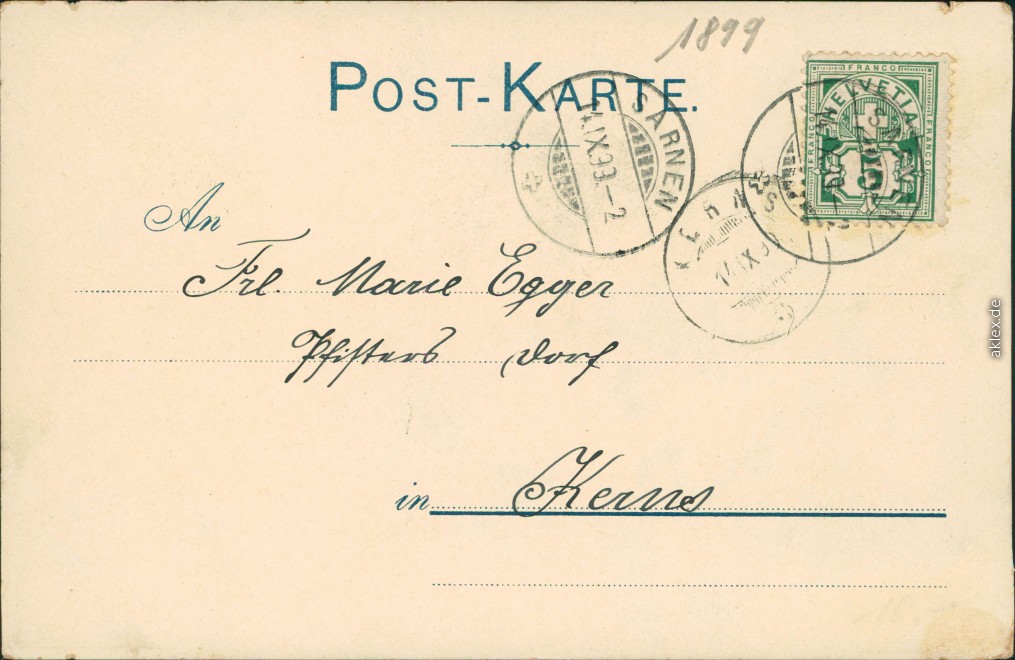 1899
POST-KARTE.
SARNEN
14.IX.99.-2
FRANCO
HELVETIA
FRANCO
FRANCO
5
SARNEN
KERNS
14.IX.9
An
Frl. Marie Egger
Pfisters Dorf
in Kerns
aklex.de